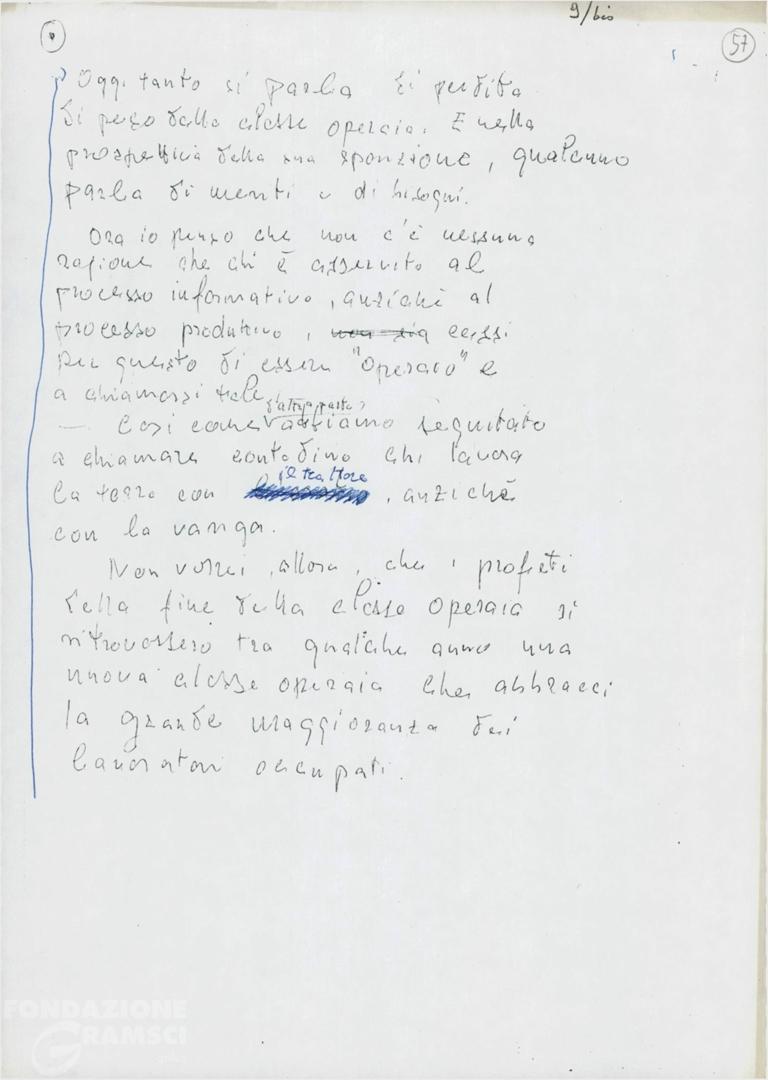 9/bis
57
Oggi tanto si parla di perdita
di peso della classe operaia. E nella
prospettiva della sua sparizione, qualcuno
parla di meriti e di bisogni.
Ora io penso che non c'è nessuna
ragione che chi è asservito al
processo informativo, anziché al
processo produttivo, non sia cessi
per questo di essere "operaio" e
a chiamarsi tale
d'altra parte
— Così come abbiamo seguitato
a chiamare contadino chi lavora
il trattore
la terra con , anziché
con la vanga.
Non vorrei, allora, che i profeti
della fine della classe operaia si
ritrovassero tra qualche anno una
nuova classe operaia che abbracci
la grande maggioranza dei
lavoratori occupati.
FONDAZIONE
GRAMSCI